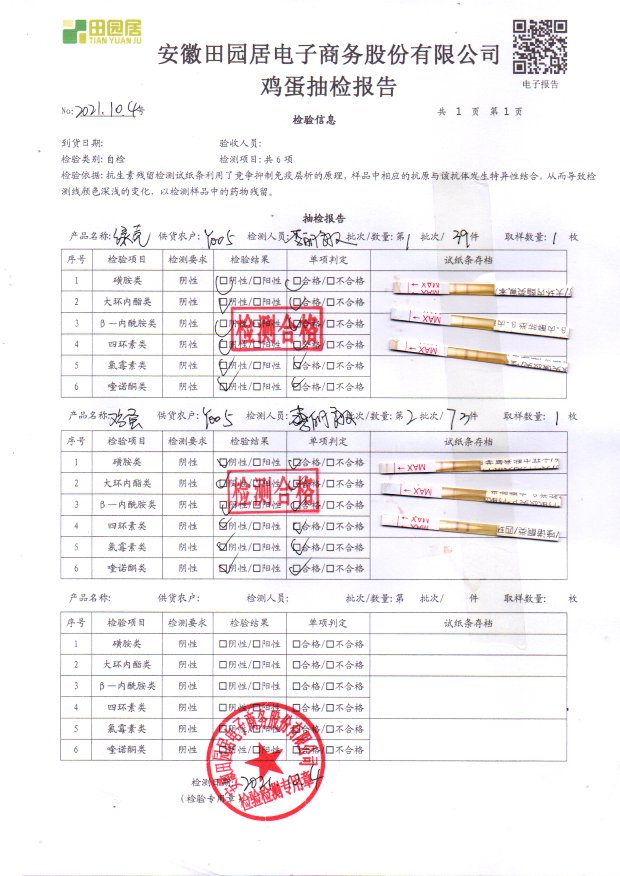 田园居
TIAN YUAN JU
安徽田园居电子商务股份有限公司
鸡蛋抽检报告
电子报告
No: 2021.10.4号
共 1 页 第 1 页
检验信息
到货日期: 验收人员:
检验类别: 自检 检测项目: 共 6 项
检验依据: 抗生素残留检测试纸条利用了竞争抑制免疫层析的原理, 样品中相应的抗原与该抗体发生特异性结合, 从而导致检
测线颜色深浅的变化, 以检测样品中的药物残留。
抽检报告
产品名称: 绿壳 供货农户: Y005 检测人员: 批次/数量: 第 1 批次/ 39 件 取样数量: 1 枚
序号 检验项目 检测要求 检验结果 单项判定 试纸条存档
1 磺胺类 阴性 □阴性/□阳性 □合格/□不合格
2 大环内酯类 阴性 □阴性/□阳性 □合格/□不合格
3 β—内酰胺类 阴性 □阴性/□阳性 □合格/□不合格
4 四环素类 阴性 □阴性/□阳性 □合格/□不合格
5 氯霉素类 阴性 □阴性/□阳性 □合格/□不合格
6 喹诺酮类 阴性 □阴性/□阳性 □合格/□不合格
检测合格
MAX
MAX
MAX
产品名称: 鸡蛋 供货农户: Y005 检测人员: 批次/数量: 第 2 批次/ 73 件 取样数量: 1 枚
序号 检验项目 检测要求 检验结果 单项判定 试纸条存档
1 磺胺类 阴性 □阴性/□阳性 □合格/□不合格
2 大环内酯类 阴性 □阴性/□阳性 □合格/□不合格
3 β—内酰胺类 阴性 □阴性/□阳性 □合格/□不合格
4 四环素类 阴性 □阴性/□阳性 □合格/□不合格
5 氯霉素类 阴性 □阴性/□阳性 □合格/□不合格
6 喹诺酮类 阴性 □阴性/□阳性 □合格/□不合格
检测合格
MAX
MAX
MAX
产品名称: 供货农户: 检测人员: 批次/数量: 第 批次/ 件 取样数量: 枚
序号 检验项目 检测要求 检验结果 单项判定 试纸条存档
1 磺胺类 阴性 □阴性/□阳性 □合格/□不合格
2 大环内酯类 阴性 □阴性/□阳性 □合格/□不合格
3 β—内酰胺类 阴性 □阴性/□阳性 □合格/□不合格
4 四环素类 阴性 □阴性/□阳性 □合格/□不合格
5 氯霉素类 阴性 □阴性/□阳性 □合格/□不合格
6 喹诺酮类 阴性 □阴性/□阳性 □合格/□不合格
安徽田园居电子商务股份有限公司
检验检测专用章
检测日期: 2021.10.4
(检验专用章)